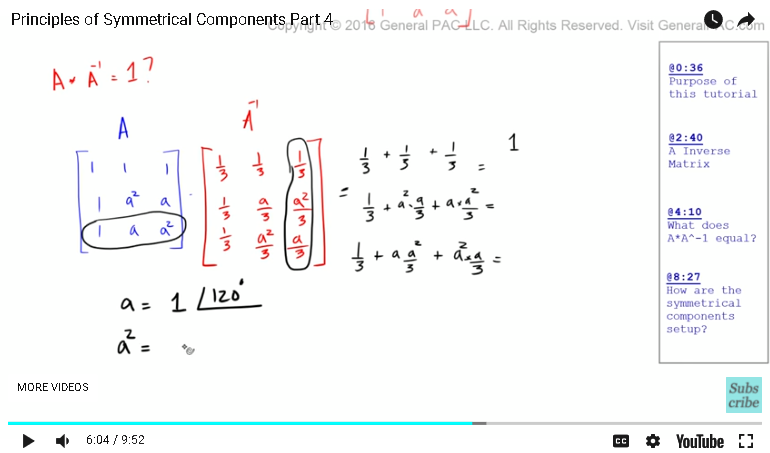 Principles of Symmetrical Components Part 4
Copyright © 2016 General PAC LLC. All Rights Reserved. Visit GeneralPAC.com
A × A⁻¹ = 1?
A
A⁻¹
1 1 1
1 a² a
1 a a²
·
1/3 1/3 1/3
1/3 a/3 a²/3
1/3 a²/3 a/3
=
1/3 + 1/3 + 1/3 = 1
1/3 + a² · a/3 + a × a²/3 =
1/3 + a a²/3 + a² × a/3 =
a = 1 ∠120°
a² =
@0:36
Purpose of
this tutorial
@2:40
A Inverse
Matrix
@4:10
What does
A*A^-1 equal?
@8:27
How are the
symmetrical
components
setup?
MORE VIDEOS
Subs
cribe
6:04 / 9:52
CC
YouTube